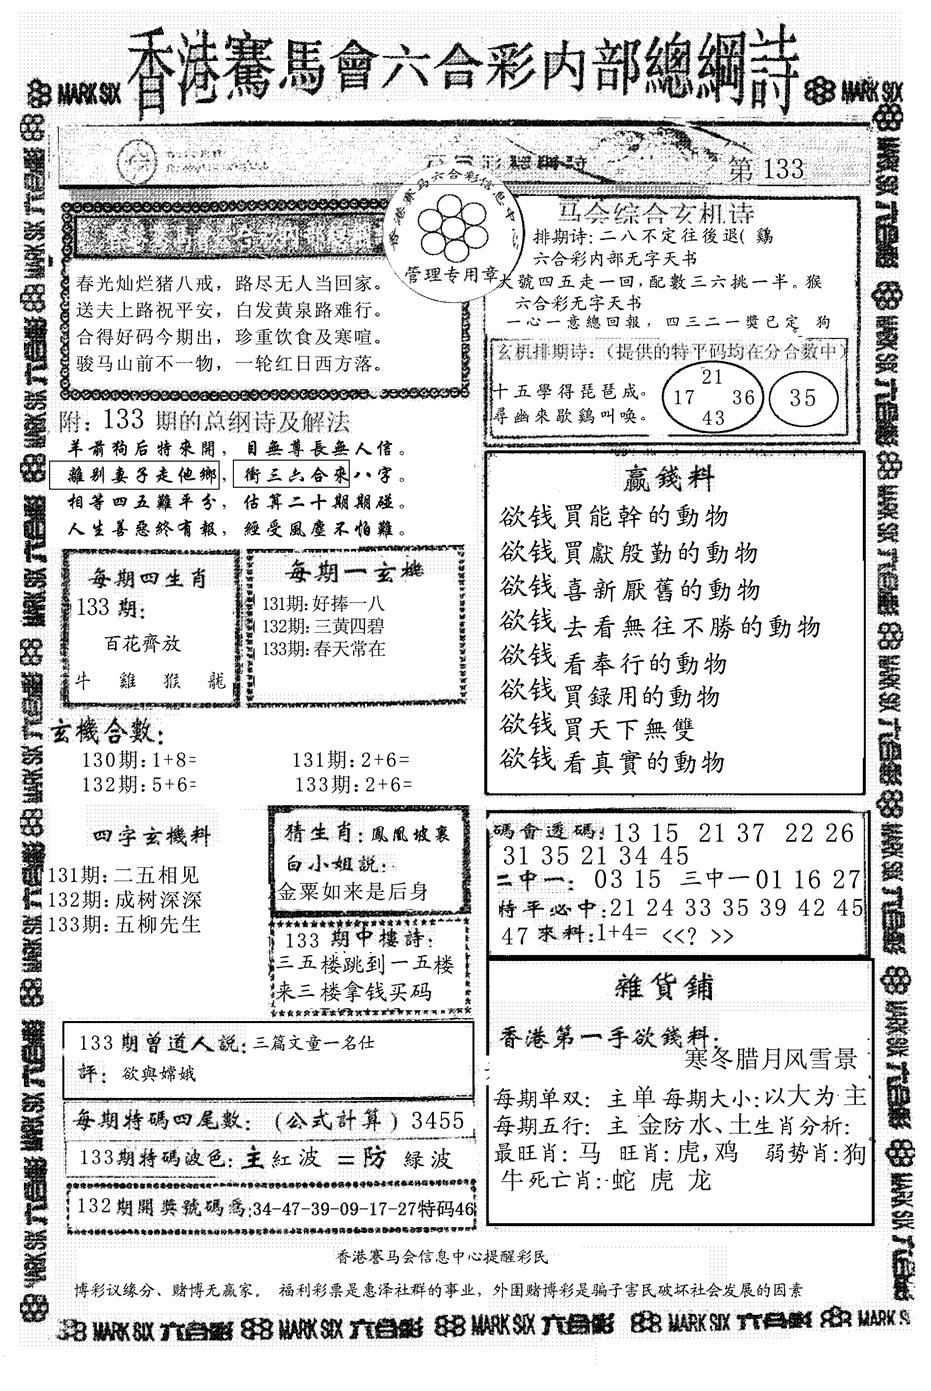 香港賽馬會六合彩内部總綱詩
MARK SIX
第 133
香港赛马六合彩信息中心
管理专用章
春光灿烂猪八戒，路尽无人当回家。
送夫上路祝平安，白发黄泉路难行。
合得好码今期出，珍重饮食及寒喧。
骏马山前不一物，一轮红日西方落。
马会综合玄机诗
排期诗:二八不定往後退( 鷄
六合彩内部无字天书
大號四五走一回,配數三六挑一半。猴
六合彩无字天书
一心一意總回報，四三二一獎已定 狗
玄机排期诗:（提供的特平码均在分合数中）
十五學得琵琶成。
尋幽來歇鷄叫唤。
21
17 36
43
35
附：133 期的总纲诗及解法
羊前狗后特來開，目無尊長無人信。
離别妻子走他鄉，衝三六合來八字。
相等四五難平分，估算二十期期碰。
人生善惡終有報，經受風塵不怕難。
每期四生肖
133 期:
百花齊放
牛 雞 猴 龍
每期一玄機
131期:好捧一八
132期:三黄四碧
133期:春天常在
赢錢料
欲钱買能幹的動物
欲钱買獻殷勤的動物
欲钱喜新厭舊的動物
欲钱去看無往不勝的動物
欲钱看奉行的動物
欲钱買録用的動物
欲钱買天下無雙
欲钱看真實的動物
玄機合數:
130期:1+8= 131期:2+6=
132期:5+6= 133期:2+6=
四字玄機料
131期:二五相见
132期:成树深深
133期:五柳先生
猜生肖:鳳凰坡裏
白小姐説:
金粟如来是后身
133 期中樓詩:
三五楼跳到一五楼
来三楼拿钱买码
碼會透碼:13 15 21 37 22 26
31 35 21 34 45
二中一: 03 15 三中一01 16 27
特平必中:21 24 33 35 39 42 45
47 來料:1+4= <<? >>
雜貨鋪
香港第一手欲錢料:
寒冬腊月风雪景
每期单双: 主单 每期大小:以大为主
每期五行: 主 金防水、土生肖分析:
最旺肖: 马 旺肖:虎,鸡 弱势肖:狗
牛死亡肖:蛇 虎 龙
133期曾道人説:三篇文童一名仕
評: 欲與嫦娥
每期特碼四尾數:（公式計算）3455
133期特碼波色:主紅波 =防 緑波
132期開獎號碼爲:34-47-39-09-17-27特码46
香港赛马会信息中心提醒彩民
博彩议缘分、赌博无赢家。 福利彩票是惠泽社群的事业，外围赌博彩是骗子害民破坏社会发展的因素
MARK SIX 六合彩 MARK SIX 六合彩 MARK SIX 六合彩 MARK SIX 六合彩 MARK SIX